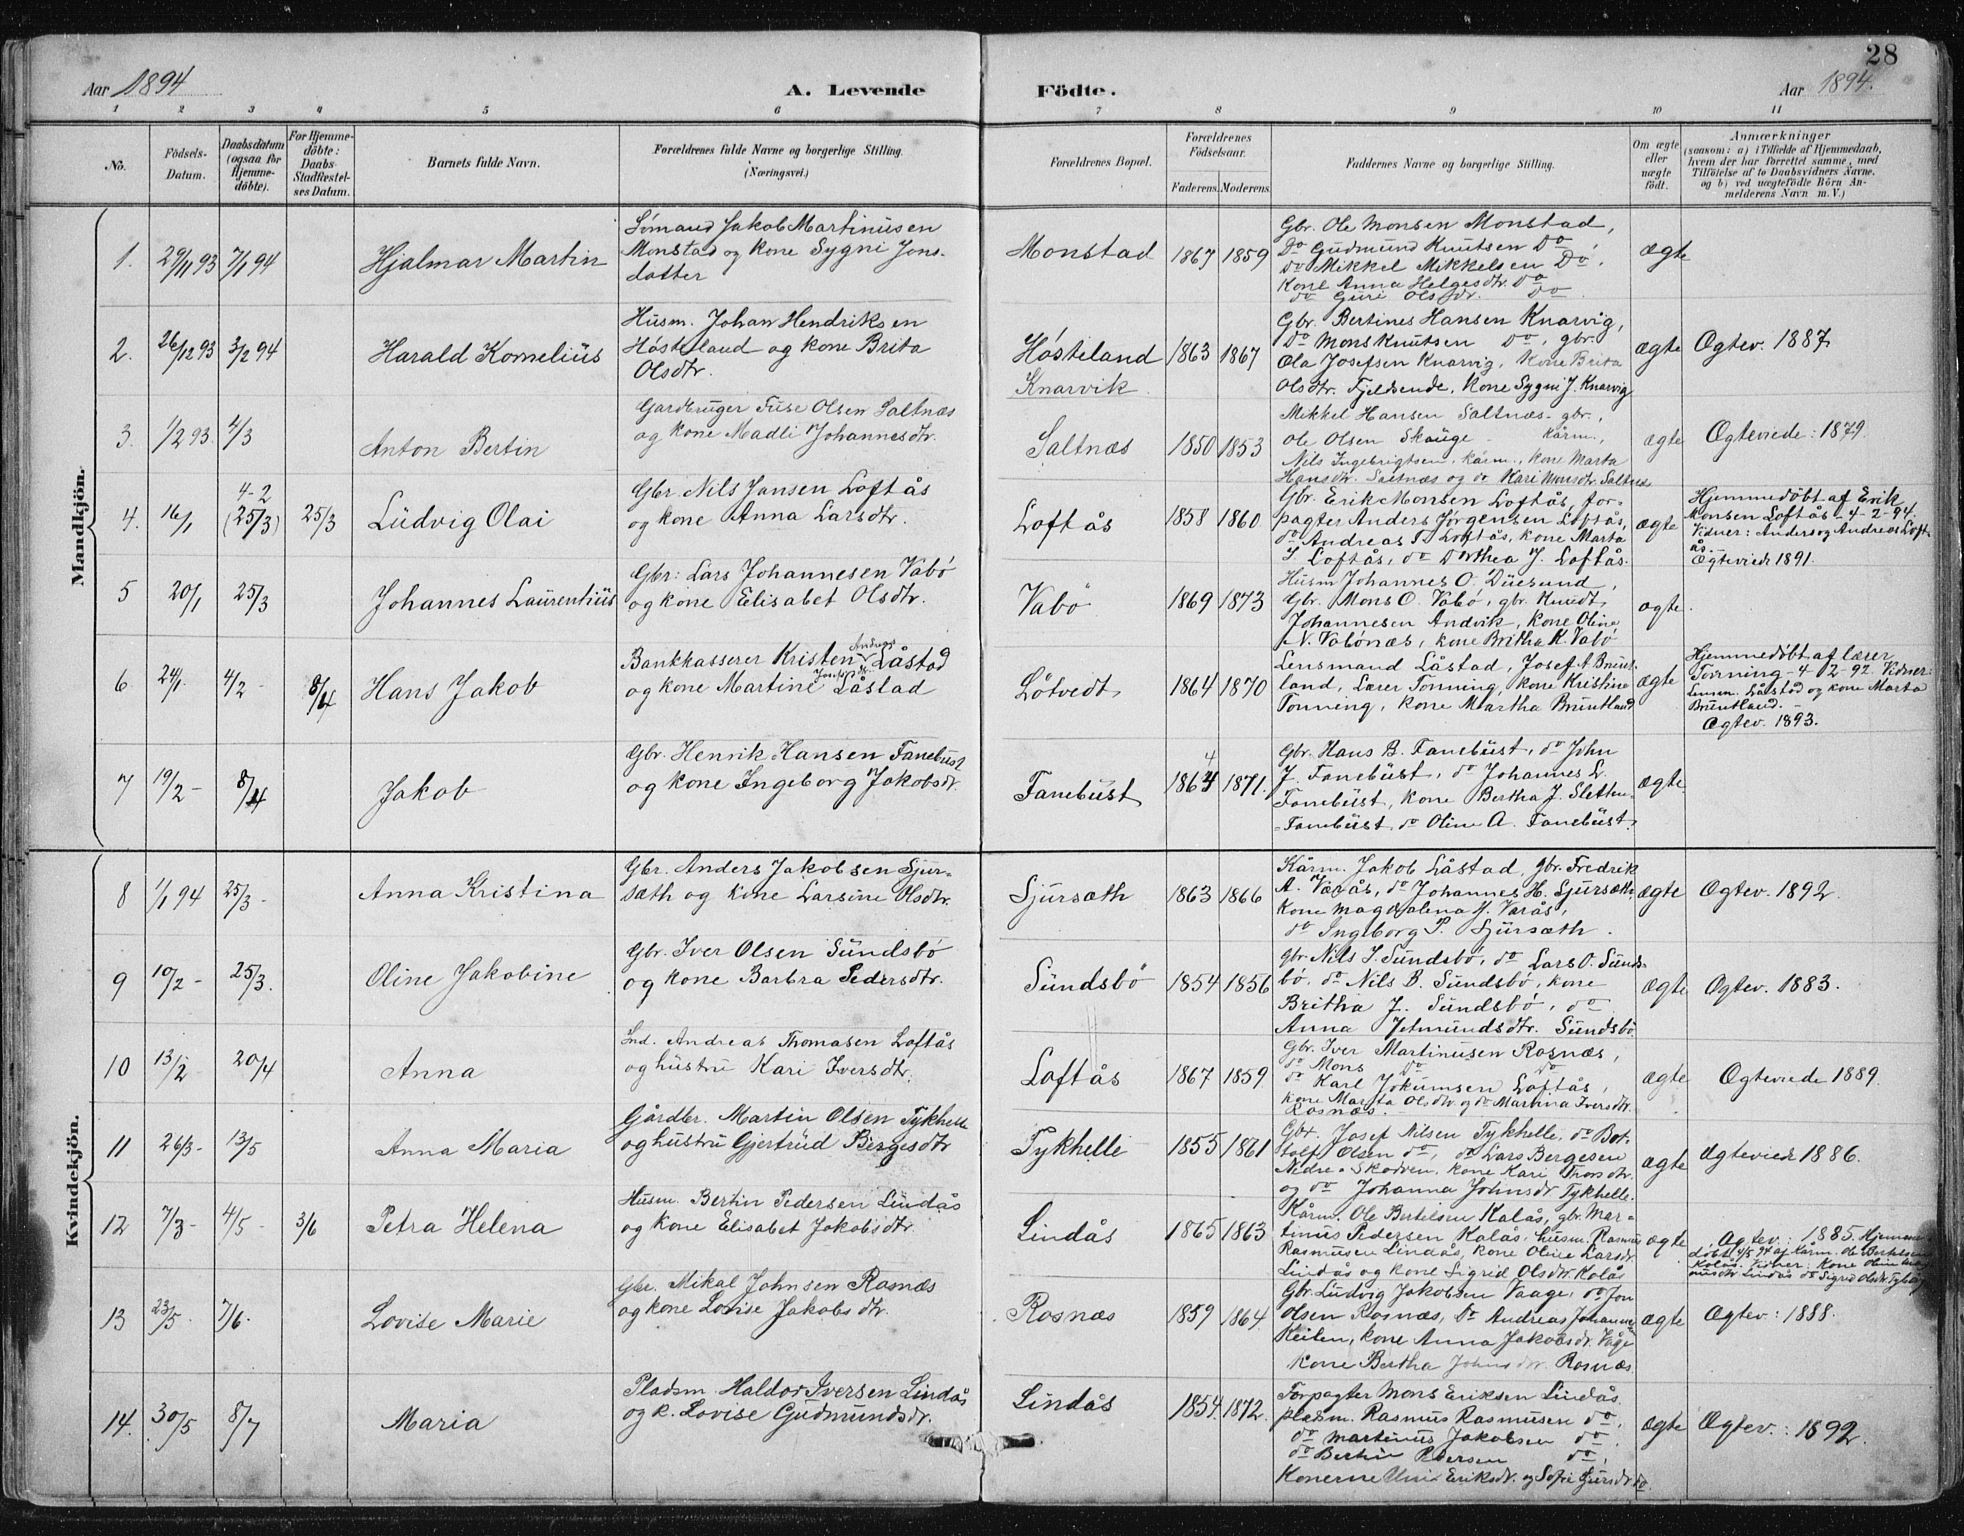 28
Aar 1894
A. Levende Födte.
Aar 1894.
1 2 3 4 5 6 7 8 9 10 11
No.
Födsels-Datum.
Daabsdatum (ogsaa for Hjemme-döbte).
For Hjemme-döbte: Daabs-Stadfæstel-ses Datum.
Barnets fulde Navn.
Forældrenes fulde Navne og borgerlige Stilling. (Næringsvei.)
Forældrenes Bopæl.
Forældrenes Födselsaar.
Faderens. Moderens.
Faddernes Navne og borgerlige Stilling.
Om ægte eller uægte født.
Anmærkninger
(saasom: a) i Tilfælde af Hjemmedaab, hvem der har forrettet samme, med Tilföielse af to Daabsvidners Navne, og b) ved uægtefödte Börn An-melderens Navn m. V.)
Mandkjön.
1. 29/11 93 7/1 94 Hjalmar Martin
Sømand Jakob Martinusen
Monstad og kone Sygni Jons-
datter
Monstad 1867 1859
Gbr. Ole Monsen Monstad,
Do Gudmund Knutsen Do,
do Mikkel Mikkelsen Do.
Kone Anna Helgesdtr. Do
do Guri Olsdtr. Do
ægte
2. 26/12 93 3/2 94 Harald Kornelius
Husm. Johan Hendriksen
Høsteland og kone Brita
Olsdtr.
Høsteland
Knarvik 1863 1867
Gbr. Bertines Hansen Knarvig,
Do Mons Knutsen Do, gbr.
Ola Josefsen Knarvig, Kone Brita
Olsdtr. Fjeldsende, Kone Sygni J. Knarvig
ægte Ægtev. 1887.
3. 1/2 93. 4/3 Anton Bertin
Gardbruger Fuse Olsen Saltnæs
og kone Madli Johannesdtr.
Saltnæs 1850 1853
Mikkel Hansen Saltnæs gbr.,
Ole Olsen Skauge - kårm.,
Nils Ingebrigtsen, kårm., kone Marta
Hansdtr. Saltnæs og do Kari Monsdtr. Saltnæs
ægte Ægteviede: 1879.
4. 16/1 4-2 (25/3) 25/3 Ludvig Olai
Gbr. Nils Jansen Loftås
og kone Anna Larsdtr.
Loftås 1858 1860
Gbr. Erik Monsen Loftås, for-
pagter Anders Jørgensen Loftås,
do Andreas T. Loftås, kone Marta
I Loftås, do Dorthea J. Loftås.
ægte
Hjemmedøbt af Erik
Monsen Loftås - 4-2-94.
Vidner: Anders og Andreas Loft-
ås.
Ægteviede 1891.
5 20/1 25/3 Johannes Laurentius
Gbr: Lars Johannesen Vabø
og kone Elisabet Olsdtr.
Vabø 1869 1873
Husm Johannes O. Düesund,
Gbr. Mons O. Vabø, gbr. Knudt
Johannesen Andvik, Kone Oline
N. Vabønæs, kone Britha K. Vabø
ægte.
6 24/1. 4/2 - 8/4 Hans Jakob
Bankkasserer Kristen Anders Låstad
og kone Martine Låstad
Løtvedt 1864 1870
Lensmand Låstad, Josef A Brunt-
land, Lærer Tonning, kone Kristine
Tonning, kone Martha Bruntland
ægte
Hjemmedøbt af lærer
Tonning - 4 - 2 - 92. Vidner:
Lensm. Låstad og kone Marta
Bruntland. -
Ægtev. 1893.
7 19/2 - 8/4 Jakob
Gbr. Henrik Hansen Fanebust
og kone Ingeborg Jakobsdr.
Fanebüst 4 1864 1871.
Gbr. Hans B. Fanebüst, do John
J. Fanebüst, do Johannes L.
Fanebüst, kone Bertha J. Slethe-
-Fanebüst, do Oline A. Fanebüst.
ægte.
Kvindekjön.
8 1/1 94 25/3 - Anna Kristina
Gbr. Anders Jakobsen Sjur-
sæth og kone Larsine Olsdtr.
Sjursæth 1863 1866
Kårm. Jakob Låstad, gbr. Fredrik
A. Varås, do Johannes H. Sjursæth
Kone Magdalena M. Varås,
do Ingeborg P. Sjursæth.
ægte Ægtev. 1892.
9 10/2 - 25/3. Oline Jakobine
Gbr. Iver Olsen Sündsbø
og kone Barbra Pedersdtr.
Sündsbø 1854 1856
gbr. Nils I. Sündsbø, do Lars O. Sünds-
bø, do Nils B. Sündsbø, kone
Britha J. Sündsbø, do
Anna Jetmundsdtr. Sündsbø
ægte Ægtev. 1883.
10 13/2 - 20/4 Anna
Ind. Andreas Thomasen Loftås
og hustru Kari Iversdtr.
Loftås 1867 1859
Gbr. Iver Martinusen Rosnæs,
do Mons Do Do
do Karl Jokumsen Loftås,
kone Marta Olsdtr og do Martina Iversdtr.
Rosnæs.
ægte Ægteviede 1889.
11 26/3 - 13/5 Anna Maria
Gårdbr. Martin Olsen Tykhelle
og hustru Gjertrud Bergesdtr
Tykhelle 1855 1861
Gbr. Josef Nilsen Tykhelle, do Bot-
tolf Olsen do, do Lars Bergesen
Nedre-Skodven, kone Kari
og do Johanna Johnsdr Tykhelle.
ægte Ægteviede 1886.
12 7/3 - 4/5 - 3/6 Petra Helena
Husm. Bertin Pedersen Lindås
og kone Elisabet Jakobsdtr.
Lindås 1865 1863
Kårm. Ole Bertelsen Kalås, gbr. Mar-
tinus Pedersen Kalås, husm. Rasmus
Rasmusen Lindås, kone Oline Larsdr
Lindås og kone Sigrid Olsdtr. Kalås
ægte
Ægtev: 1885. Hjemme-
døbt 4/5 94 af kårm. Ole Bertelsen
Kalås. Vidner: Kone Oline
Lindås do Sigrid Olsdtr.
13 23/5 - 7/6. Lovise Marie
Gbr. Mikal Johnsen Rosnæs
og kone Lovise Jakobsdtr.
Rosnæs 1859 1864
Gbr. Ludvig Jakobsen Vaage, do Jon
Olsen Rosnæs, do Andreas Johannes
Keilen, kone Anna Jakobsdr. Våge
kone Bertha Johnsdtr. Rosnæs
ægte Ægtev: 1888.
14. 30/5 8/7 Maria
Pladsm. Haldor Iversen Lindås
og k. Lovise Gudmundsdr.
Lindås 1854. 1872.
Forpagter Mons Eriksen Lindås
pladsm. Rasmus Rasmusen do,
do Martinus Jakobsen do.
do Bertin Pedersen do,
Konerne Eriksdr. og Sofie Sjursdr do
ægte Ægtev.: 1892.